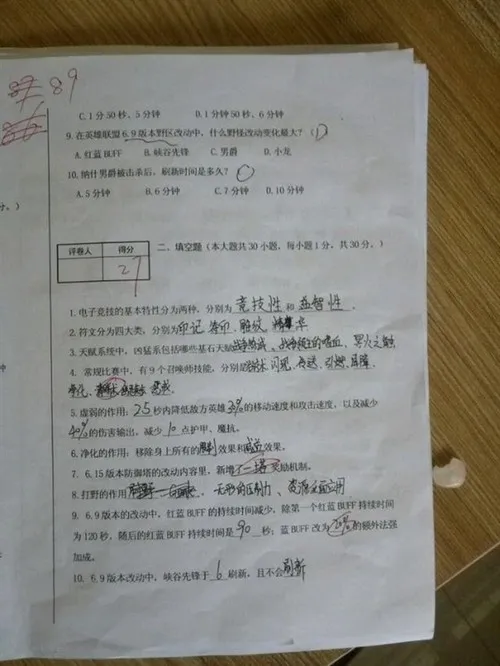 89
C.1分50秒、5分钟 D.1分钟50秒、6分钟
9.在英雄联盟6.9版本野区改动中，什么野怪改动变化最大？（D）
A.红蓝BUFF B.峡谷先锋 C.男爵 D.小龙
10.纳什男爵被击杀后，刷新时间是多久？
A.5分钟 B.6分钟 C.7分钟 D.10分钟
分。）
评卷人 得分
27
二、填空题（本大题共30小题，每小题1分，共30分。）
1.电子竞技的基本特性分为两种，分别为 竞技性 和 益智性.
2.符文分为四大类，分别为印记、符印、雕纹、精华
3.天赋系统中，凶猛系包括哪些基石天赋 战争热诚、的嗜血、冥火之触
4.常规比赛中，有9个召唤师技能，分别是 闪现、传送、引燃、屏障、
净化、
5.虚弱的作用：2.5秒内降低敌方英雄30%的移动速度和攻击速度，以及减少
40%的伤害输出，减少10点护甲、魔抗。
6.净化的作用：移除身上所有的 效果和 效果。
7.6.15版本防御塔的改动内容里，新增了一塔奖励机制。
8.打野的作用 、无形的压制力、资源
9.6.9版本的改动中，红蓝BUFF的持续时间减少，除第一个红蓝BUFF持续时间
为120秒，随后的红蓝BUFF持续时间是90秒；蓝BUFF改为 的额外法强
加成。
10.6.9版本改动中，峡谷先锋于6刷新，且不会刷新